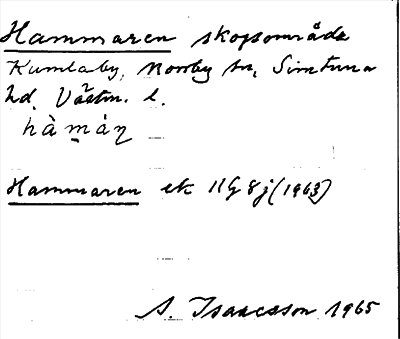 Hammaren skogsområde
Kumlaby, Norrby sn, Simtuna
hd. Västm. l.
hàmáṇ
Hammaren ek 11G 8j (1963)
A. Isaacsson 1965